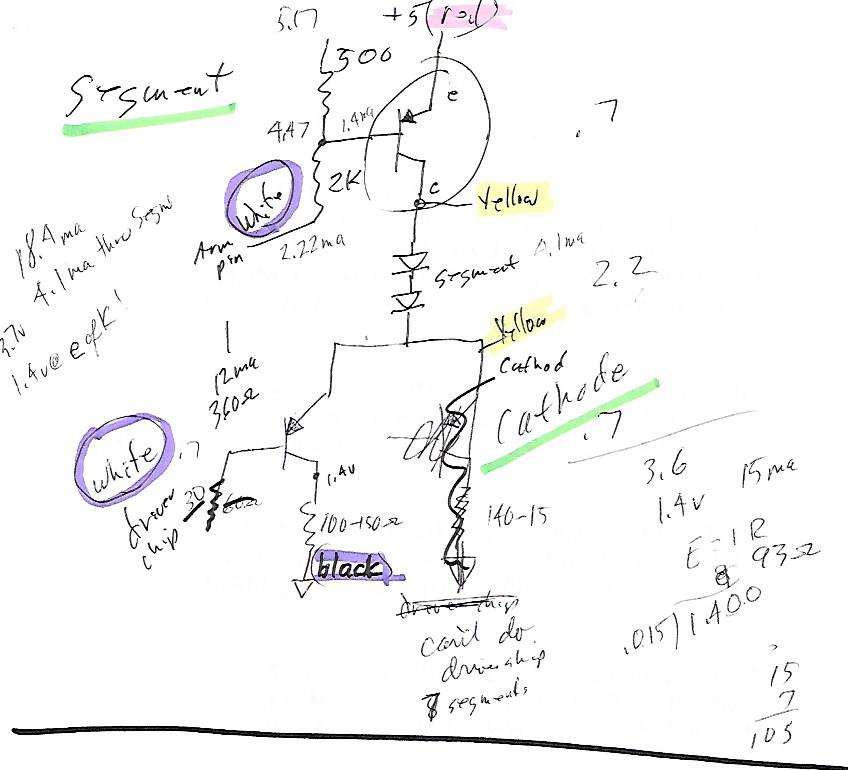 5.17
+5 (red)
500
Segment
e
4.47
1.4ma
.7
2K
White
c
Yellow
Arm
pin
2.22ma
18.4ma
4.1ma thru Segm
3.7v
1.4v@ e of K!
segment 4.1ma
2.2
Yellow
12ma
360Ω
Cathod
Cathode
.7
White
.7
driver
chip
30
60Ω
1.4v
100-150Ω
black
140-15
3.6
1.4v
15ma
E=IR
93Ω
.015)1.400
driver chip
can't do
driver chip
7 segments
15
7
105